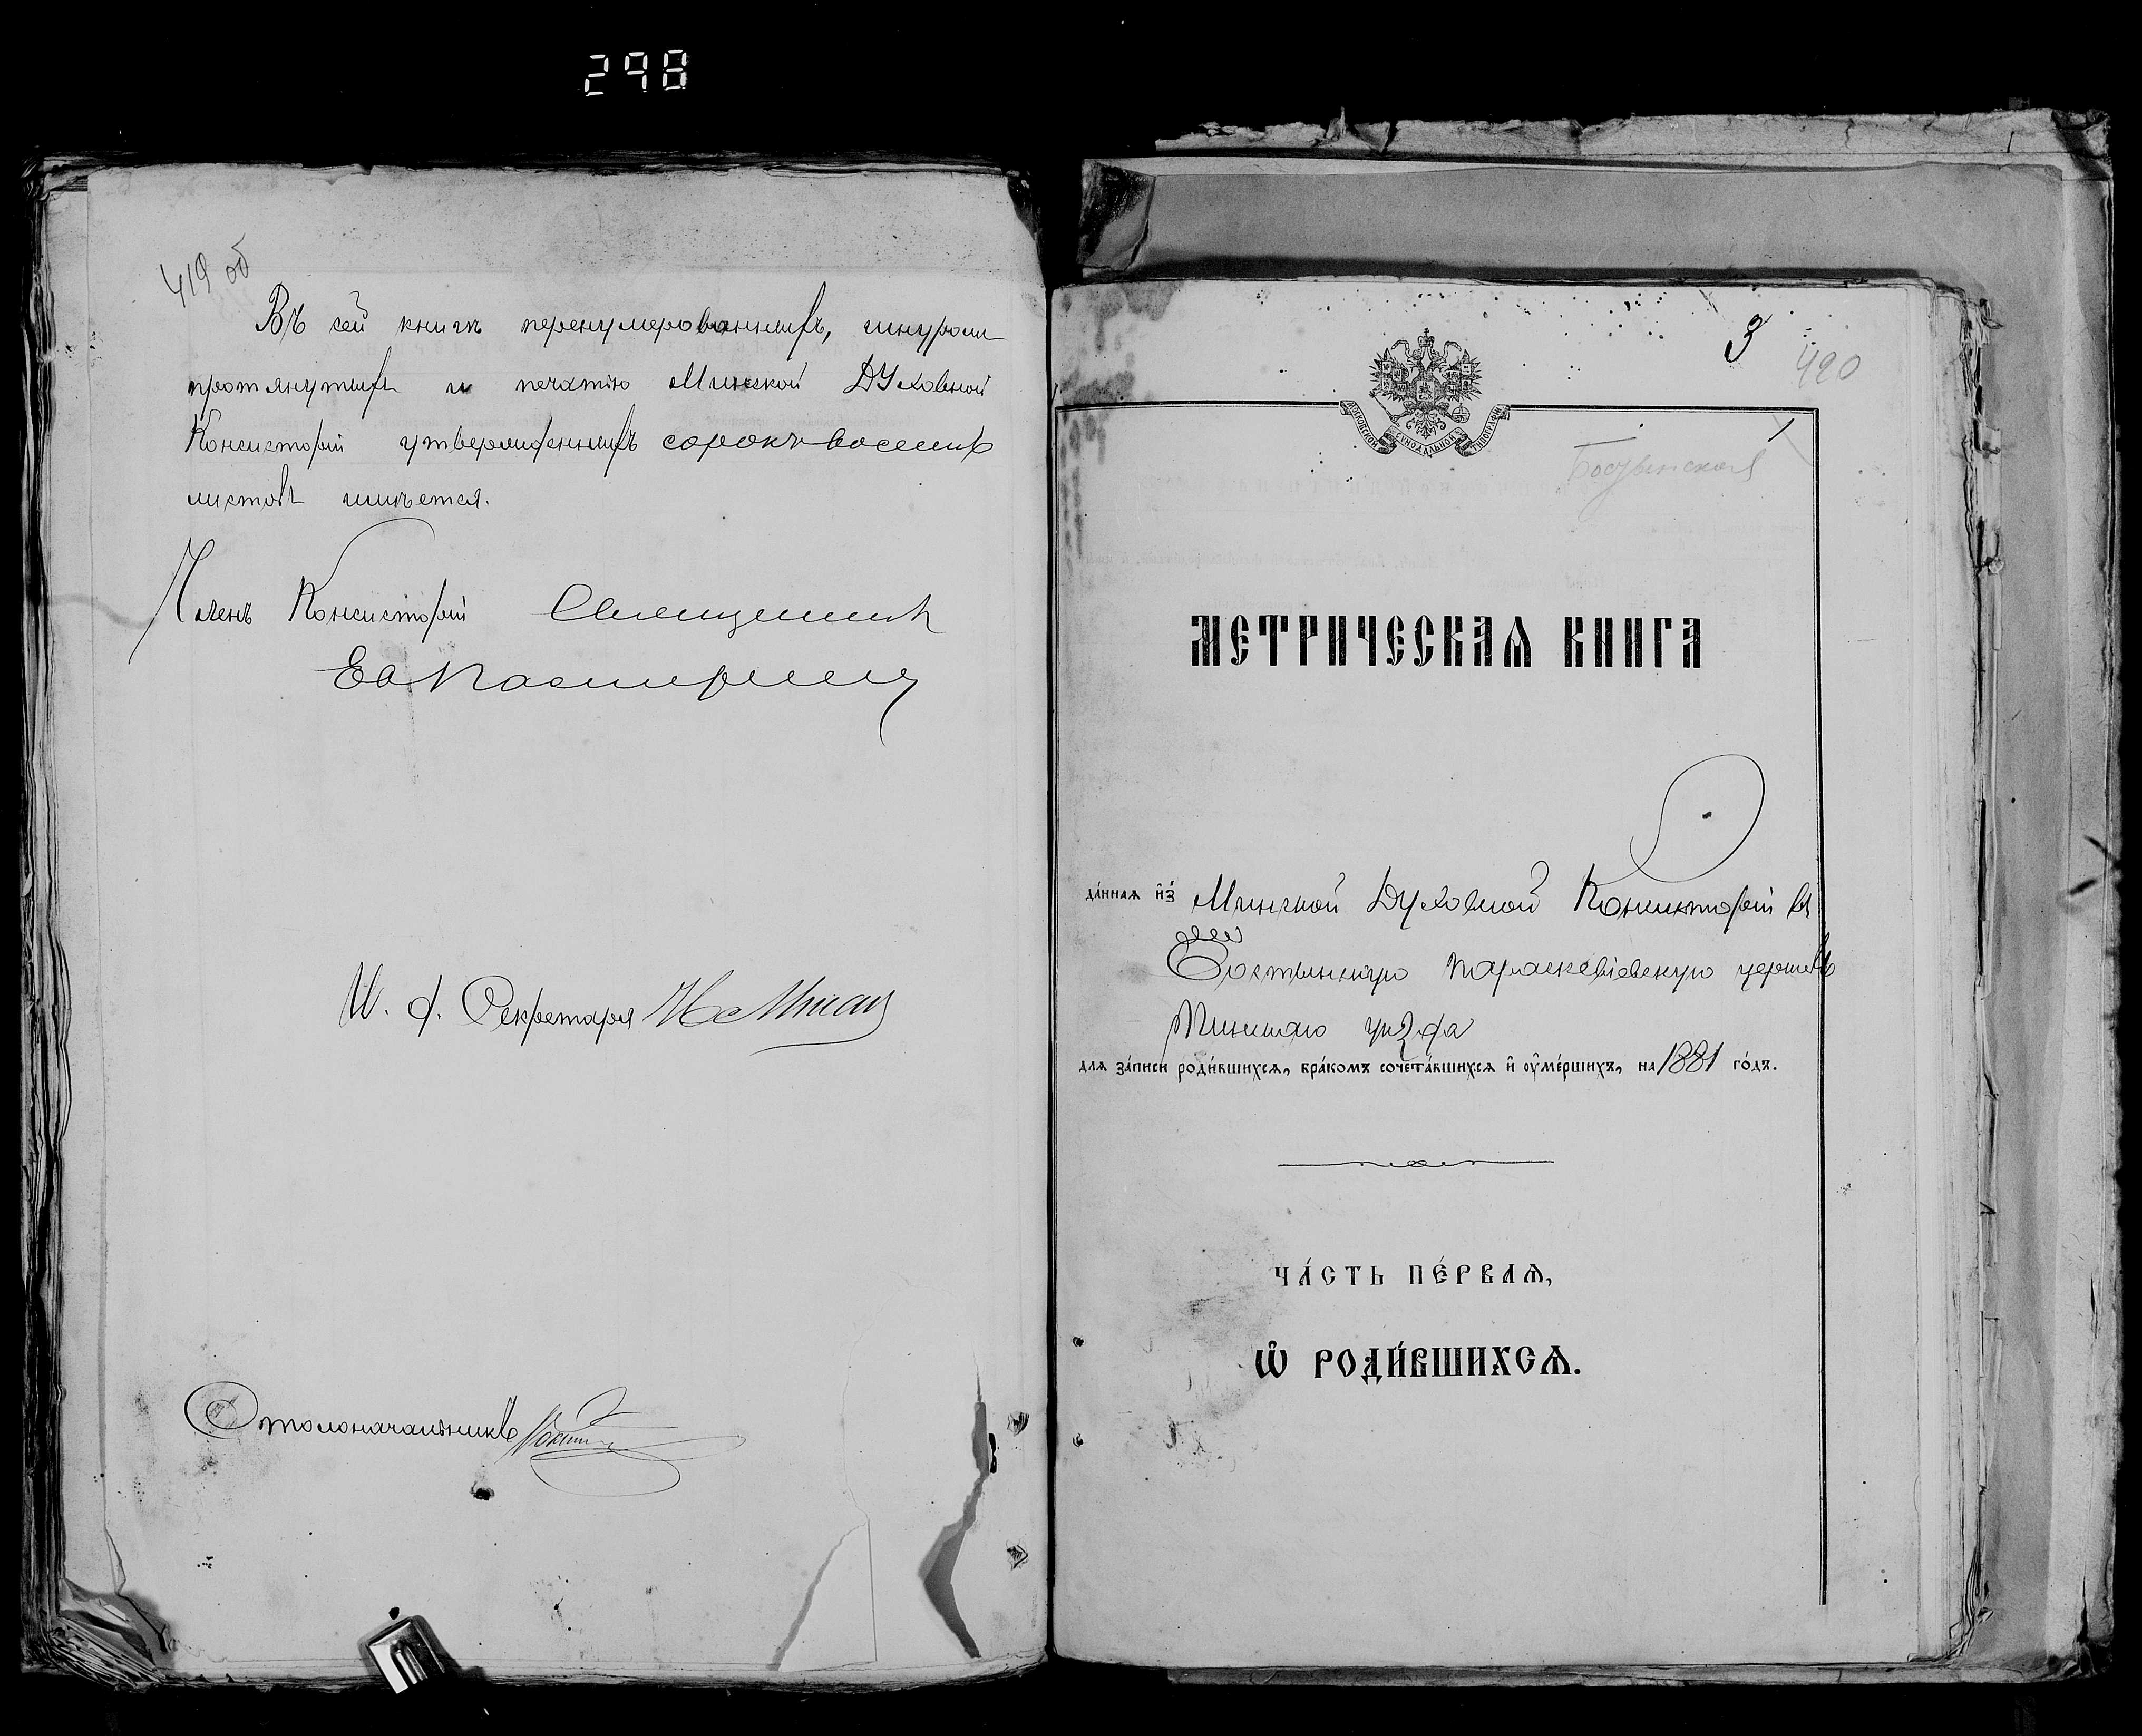 298
419 об
Въ сей книгѣ перенумерованныхъ, шнуромъ
протянутыхъ и печатью Минской Духовной
Консисторіи утвержденныхъ сорокъ восемь
листовъ имѣется.
Членъ Консисторіи Священникъ
И. д. Секретаря
Столоначальникъ
3
420
МОСКОВСКОЙ СѴНОДАЛЬНОЙ ТИПОГРАФІИ
1
МЕТРИЧЕСКАѦ КНИГА
да́ннаѧ и҆з̾ Минской Духовной Консисторіи въ
Параскевіевскую церковь
Минскаго уѣзда
длѧ за́писи роди́вшихсѧ, бра́комъ сочета́вшихсѧ и҆ ᲂу҆ме́ршихъ, на 1881 го́дъ.
ЧА́СТЬ ПЕ́РВАѦ,
Ѽ РОДИ́ВШИХСѦ.